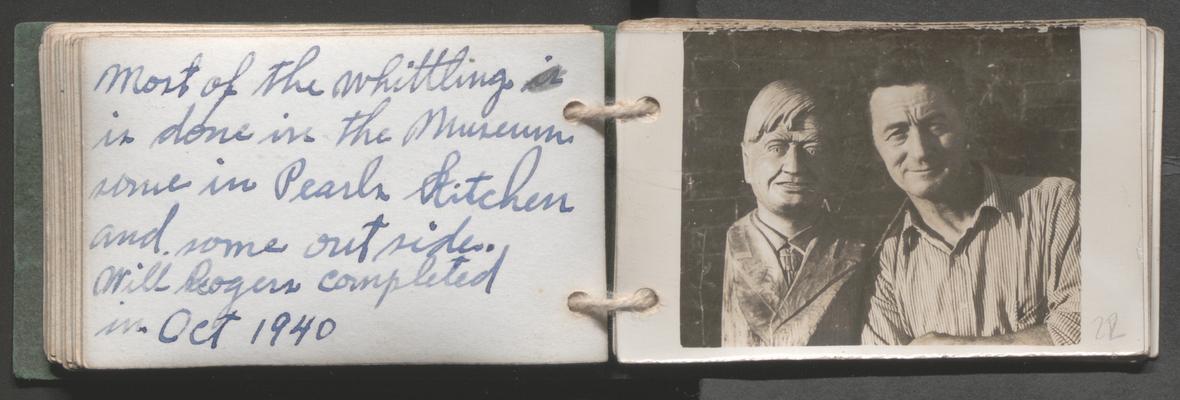 Most of the whittling is
is done in the Museum.
some in Pearls Kitchen
and some out side.
Will Rogers completed
in Oct 1940
2R